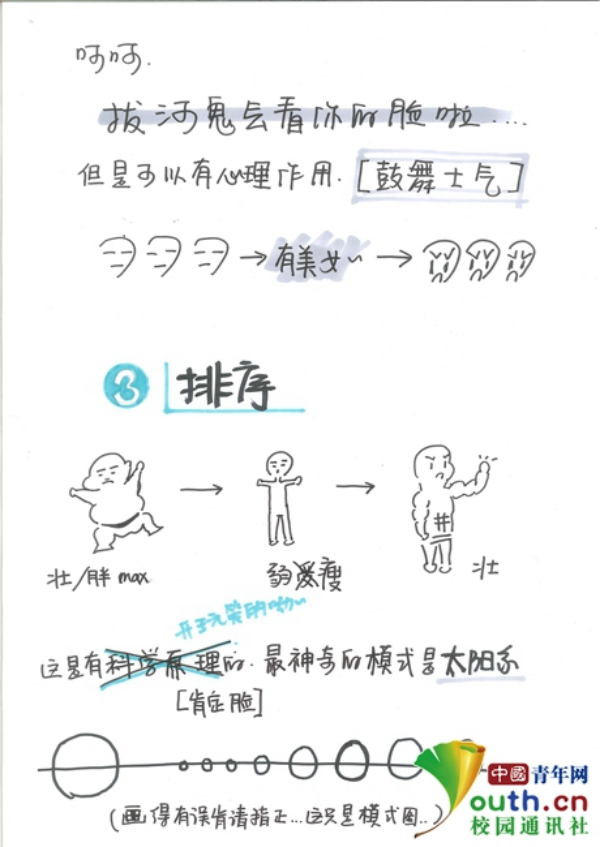 呵呵.
拔河鬼会看你的脸啦.....
但是可以有心理作用. [鼓舞士气]
→有美女~→
3 排序
→ →
壮/胖max 弱爱瘦 壮
开玩笑的哟~
这是有科学原理的. 最神奇的模式是太阳系
[肯定脸]
(画得有误肯请指正...这只是模式图..)
中國青年网
outh.cn
校园通讯社